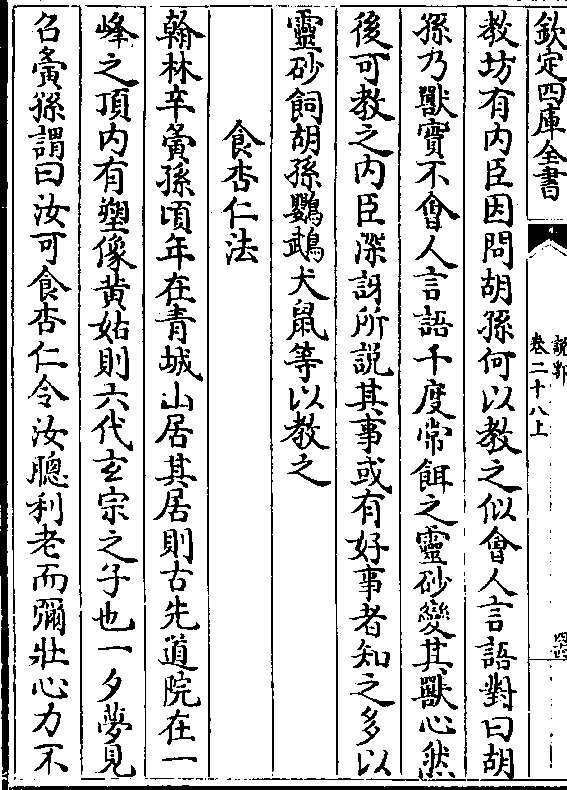 欽定四庫全書
説郛
卷二十八上
教坊有内臣因問胡孫何以教之似會人言語對曰胡
孫乃獸實不會人言語千度常餌之靈砂變其獸心然
後可教之内臣深訝所説其事或有好事者知之多以
靈砂飼胡孫鸚鵡犬鼠等以教之
食杏仁法
翰林辛夤孫頃年在青城山居其居則古先道院在一
峰之頂内有塑像黄姑則六代玄宗之子也一夕夢見
召夤孫謂曰汝可食杏仁令汝聰利老而彌壯心力不